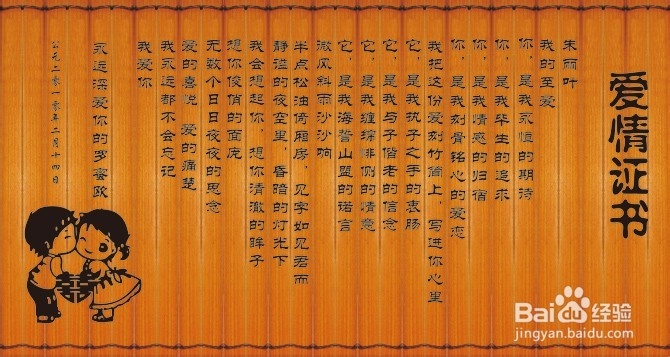 爱情证书
朱丽叶
我的至爱
你，是我永恒的期待
你，是我毕生的追求
你，是我情感的归宿
你，是我刻骨铭心的爱恋
我把这份爱刻竹简上，写进你心里
它，是我执子之手的衷肠
它，是我与子偕老的信念
它，是我缠绵悱恻的情意
它，是我海誓山盟的诺言
微风斜雨沙沙响
半点松油倚厢房，见字如见君而
静谧的夜空里，昏暗的灯光下
我会想起你，想你清澈的眸子
想你俊俏的面庞
无数个日日夜夜的思念
爱的喜悦 爱的痛楚
我永远都不会忘记
我爱你
永远深爱你的罗密欧
公元二零一零年二月十四日
囍
Baidu 经验
jingyan.baidu.com